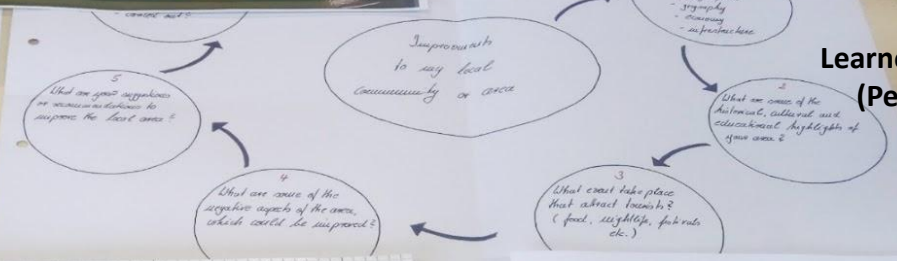 - geography
- economy
- infrastructure
Learne
(Pe
Improvements
to my local
community or area
2
What are some of the
historical, cultural and
educational highlights of
your area?
3
What event take place
that attract tourists?
(food, nightlife, festivals
etc.)
4
What are some of the
negative aspects of the area,
which could be improved?
5
What are your suggestions
or recommendations to
improve the local area?